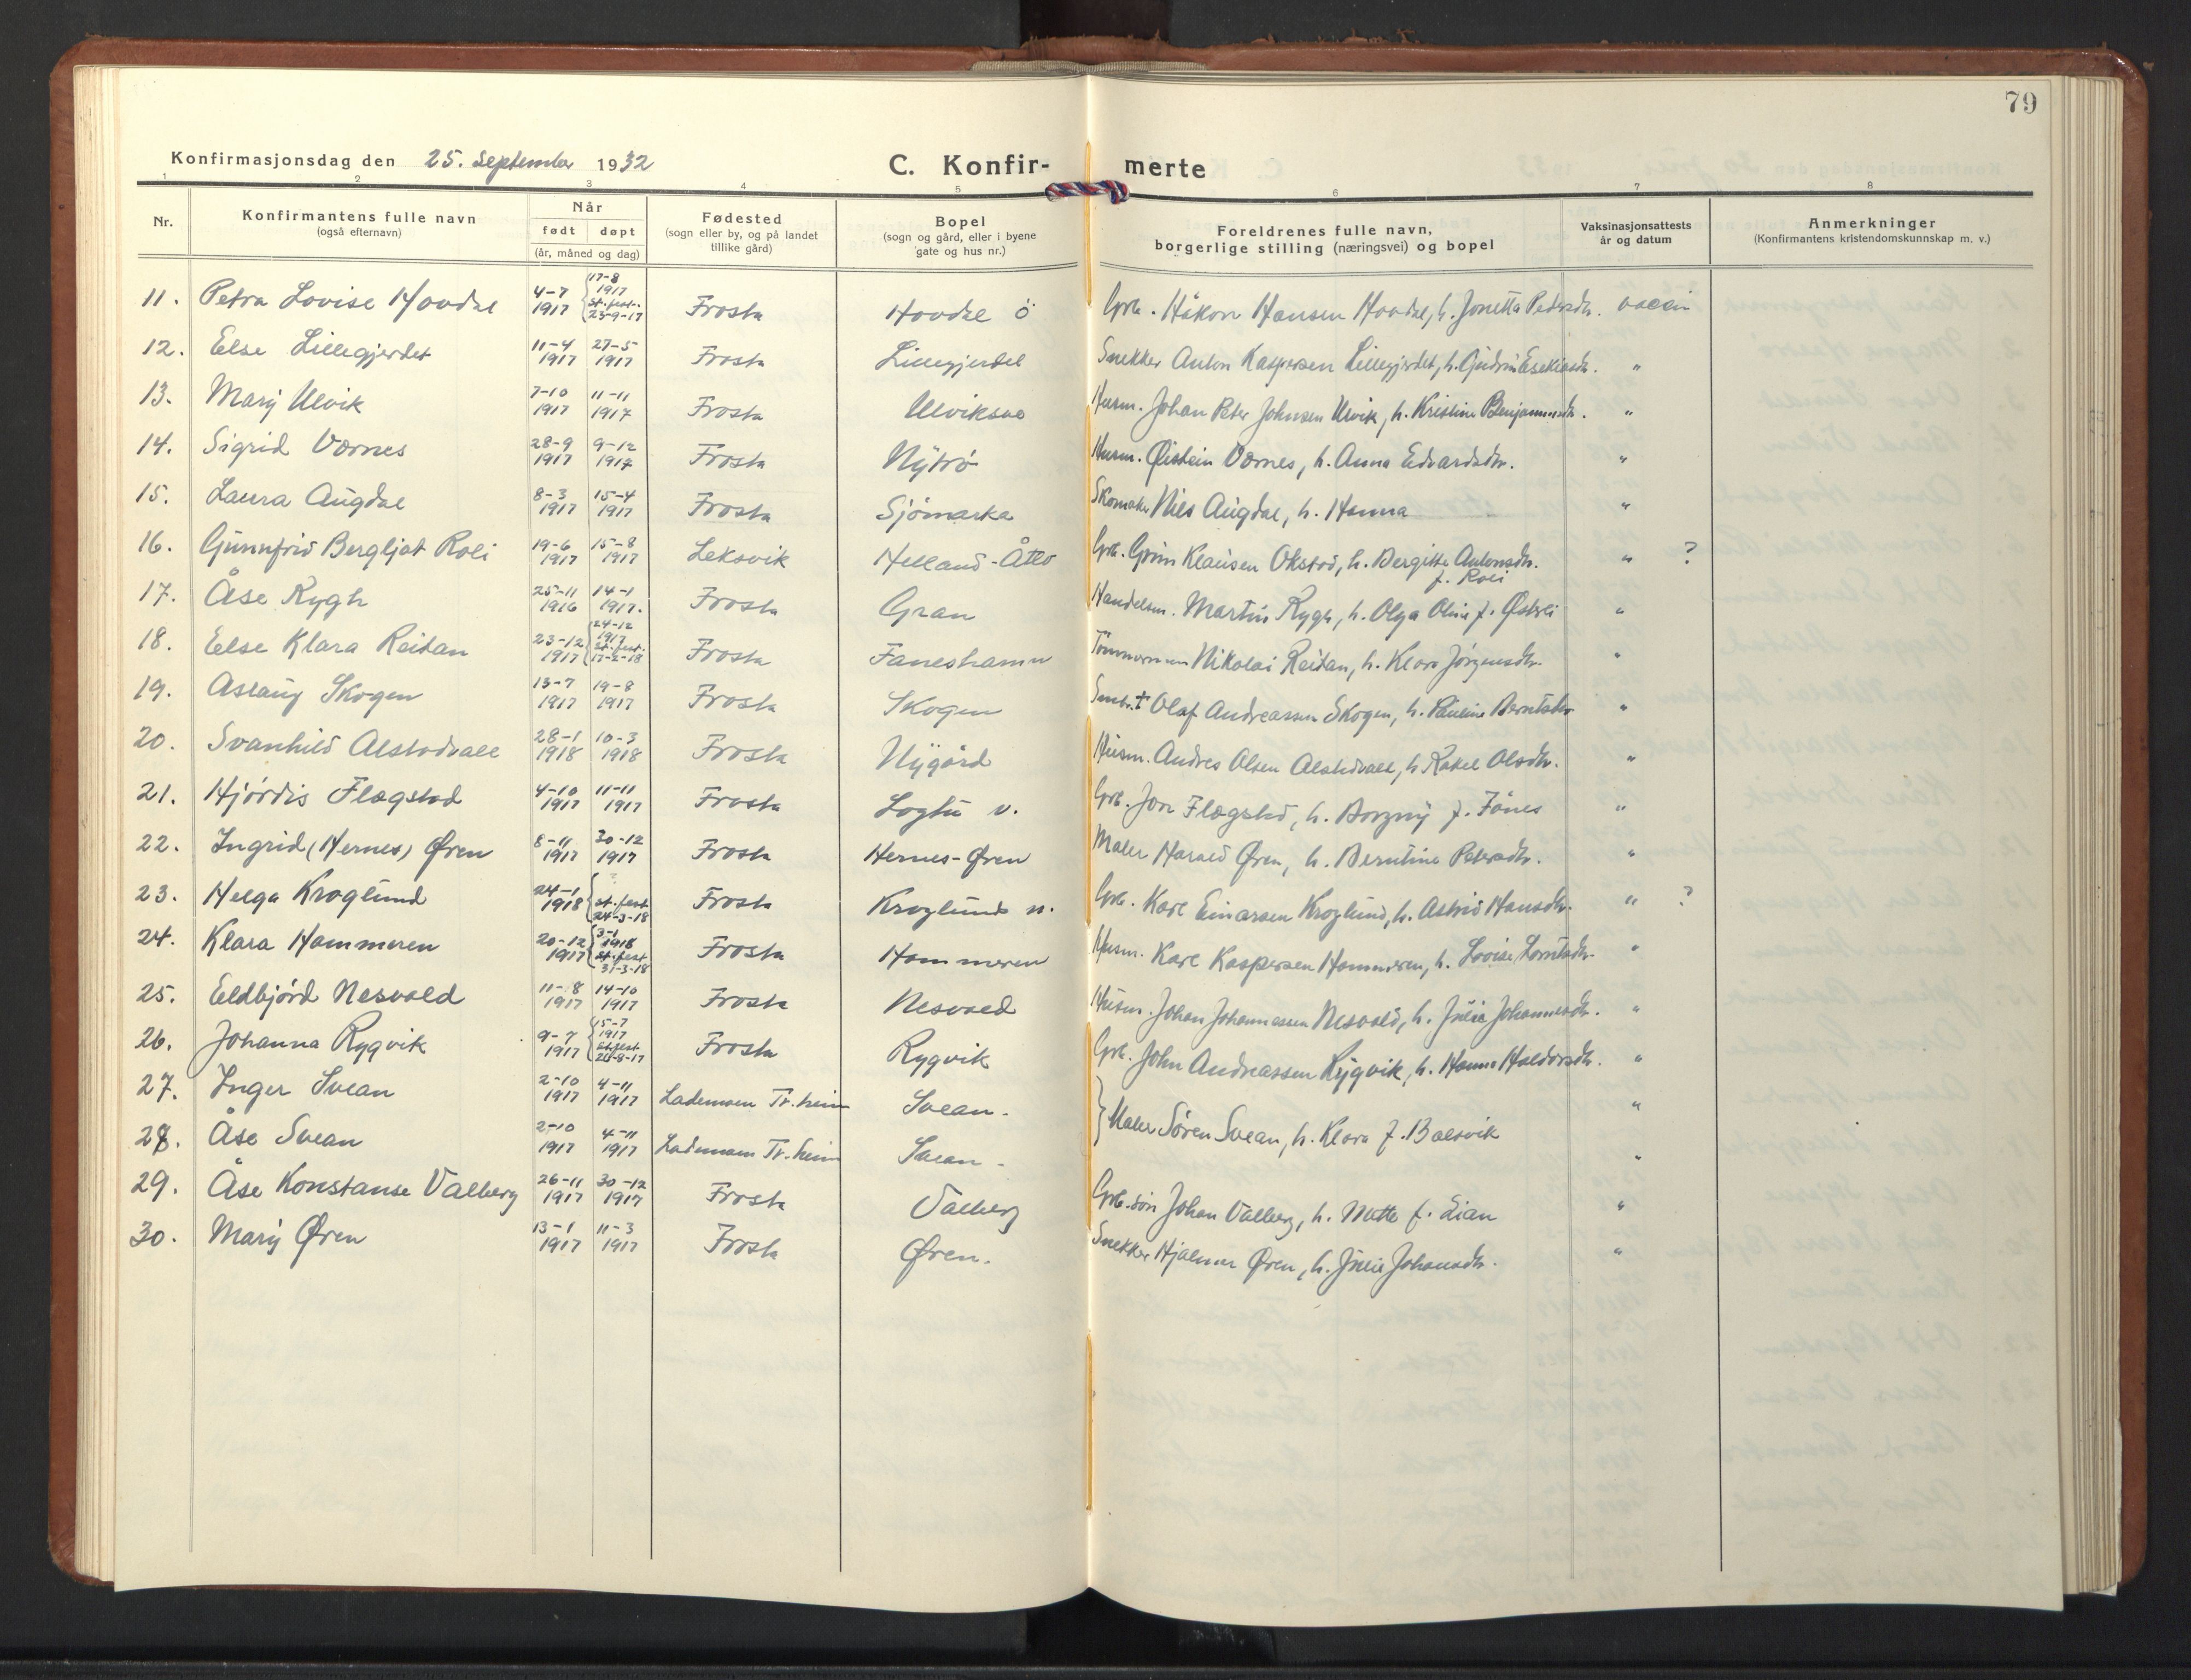 79
Konfirmasjonsdag den 25. September 1932 C. Konfir- merte
1 2 3 4 5 6 7 8
Nr. Konfirmantens fulle navn (også efternavn) Når født døpt (år, måned og dag) Fødested (sogn eller by, og på landet tillike gård) Bopel (sogn og gård, eller i byene gate og hus nr.) Foreldrenes fulle navn, borgerlige stilling (næringsvei) og bopel Vaksinasjonsattests år og datum Anmerkninger (Konfirmantens kristendomskunnskap m. v.)
11. Petra Lovise Hovdal 4-7 1917 17-8 1917 st.fest. 23-9-17 Frosta Hovdal ö Grb. Håkon Hansen Hovdal, h. Jonetta Pedersdtr. vaccin
12. Else Lillegjerdet 11-4 1917 27-5 1917 Frosta Lillegjerdet Snekker Anton Kaspersen Lillegjerdet, h. Gudrun Esekiasdtr. "
13. Mary Ulvik 7-10 1917 11-11 1917 Frosta Ulviksvo Husm. Johan Peter Johnsen Ulvik, h. Kristine Benjaminsdtr. "
14. Sigrid Værnes 28-9 1917 9-12 1917 Frosta Nytrø Husm. Øistein Værnes, h. Anna Edvardsdtr. "
15. Laura Augdal 8-3 1917 15-4 1917 Frosta Sjömarka Skomaker Nils Augdal, h. Hanna "
16. Gunnfrid Bergljot Roli 19-6 1917 15-8 1917 Leksvik Helland-Åtlo Grb. Grim Klausen Okstad, h. Bergitte Antonsdtr. f. Roli " ?
17. Åse Rygh 25-11 1916 14-1 1917. Frosta Gran Handelsm. Martin Rygh, h. Olga Oline f. Østvli "
18. Else Klara Reitan 23-12 1917 24-12 1917 st.fest. 17-2-18 Frosta Faneshamn Tömmermann Nikolai Reitan, h. Klara Jörgensdtr. "
19. Aslaug Skogen 13-7 1917 19-8 1917 Frosta Skogen Smbr. † Olaf Andreassen Skogen, h. Pauline Berntsdtr "
20. Svanhild Alstadvall 28-1 1918 10-3 1918 Frosta Nygård Husm. Andres Olsen Alstadvall, h. Rakel Olsdtr. "
21. Hjördis Flægstad 4-10 1917 11-11 1917 Frosta Logtu v. Grb. Jon Flægstad, h. Borgny f. Fånes "
22. Ingrid (Hernes) Øren 8-11 1917 30-12 1917 Frosta Hernes-Øren Maler Harald Øren, h. Berntine Petersdtr. "
23. Helga Kroglund 24-1 1918 st.fest 24-3-18 Frosta Kroglund n. Grb. Karl Einarsen Kroglund, h. Astrid Hansdtr. " ?
24. Klara Hammeren 20-12 1917 3-1 1918 st.fest 31-3-18 Frosta Hammeren Husm. Karl Kaspersen Hammeren, h. Lovise Lorntsdtr. "
25. Eldbjörd Nesvold 11-8 1917 14-10 1917 Frosta Nesvold Husm. Johan Johannessen Nesvold, h. Julie Johannesdtr. "
26. Johanna Rygvik 9-7 1917 15-7 1917 st.fest 26-8-17 Frosta Rygvik Grb. John Andreassen Rygvik, h. Hanna Haldorsdtr. "
27. Inger Svean 2-10 1917 4-11 1917 Lademoen Tr.heim Svean. "
28. Åse Svean 2-10 1917 4-11 1917 Lademoen Tr.heim Svean - } Maler Sören Svean, h. Klara f. Balsvik "
29. Åse Konstanse Valberg 26-11 1917 30-12 1917 Frosta Valberg Grb.sön Johan Valberg, h. Mette f. Lian "
30. Mary Øren 13-1 1917 11-3 1917 Frosta Øren. Snekker Hjalmar Øren, h. Julie Johansdtr. "